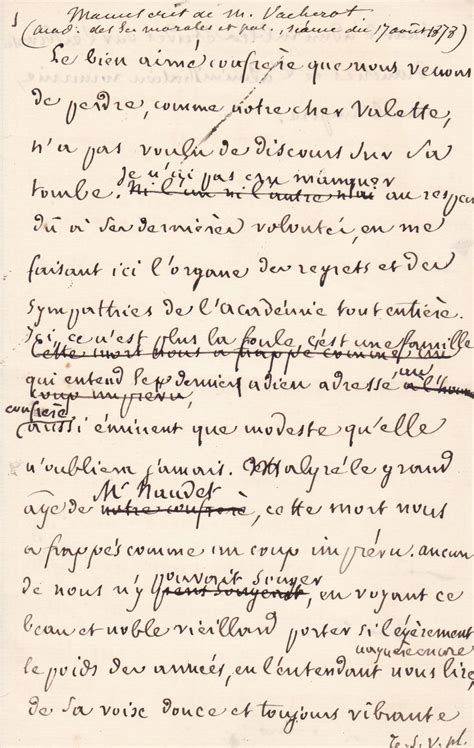 Manuscrit de M. Vacherot.
(acad. des Sc. morales et pol., séance du 17 août 1878)
Le bien aimé confrère que nous venons
de perdre, comme notre cher Valette,
n'a pas voulu de discours sur sa
je n'ai pas cru manquer
tombe. Ni l'un ni l'autre n'ai au respect
dû à ses dernières volontés, en me
faisant ici l'organe des regrets et des
sympathies de l'Académie tout entière.
Ici, ce n'est plus la foule, c'est une famille
Cette mort nous a frappé comme un
qui entend le dernier adieu adressé à l'homme
un
coup imprévu,
confrère
aussi éminent que modeste qu'elle
n'oubliera jamais. Malgré le grand
Mr Naudet
âge de notre confrère, cette mort nous
a frappés comme un coup imprévu. aucun
pouvait songer
de nous n'y, en voyant ce
beau et noble vieillard porter si légèrement
naguère encore
le poids des années, en l'entendant nous lire,
de sa voix douce et toujours vibrante
T. S. V. pl.